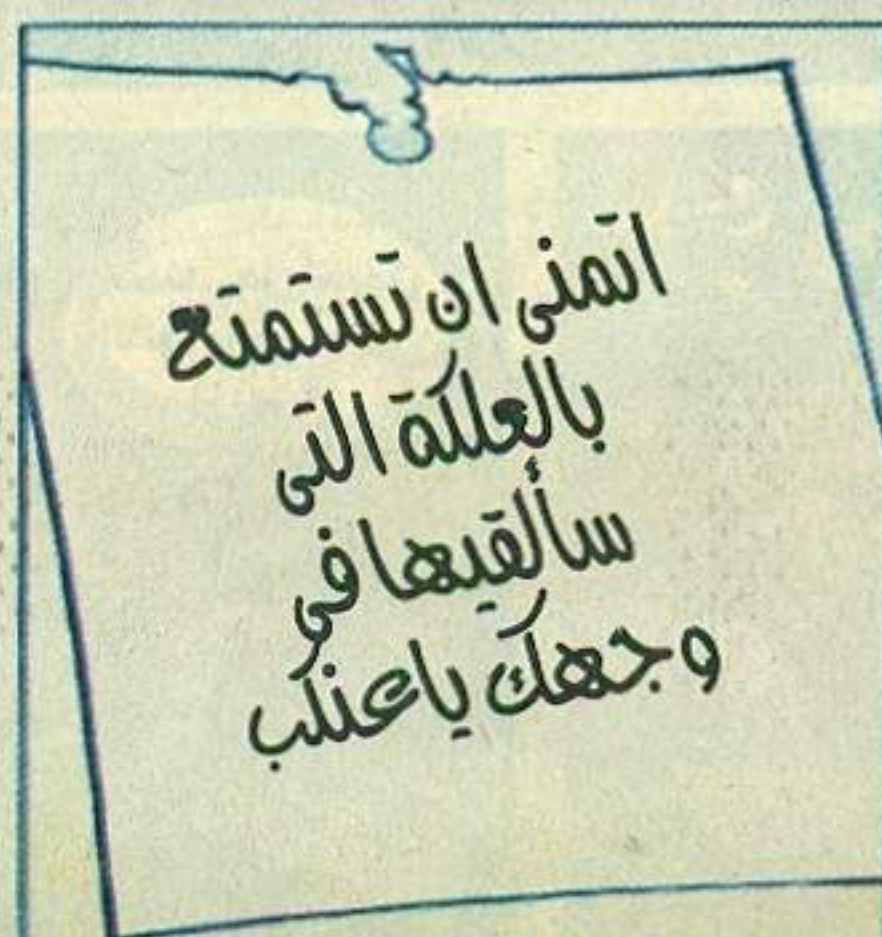 اتمنى ان تستمتع
بالعلكة التى
سألقيها فى
وجهك ياعنكب